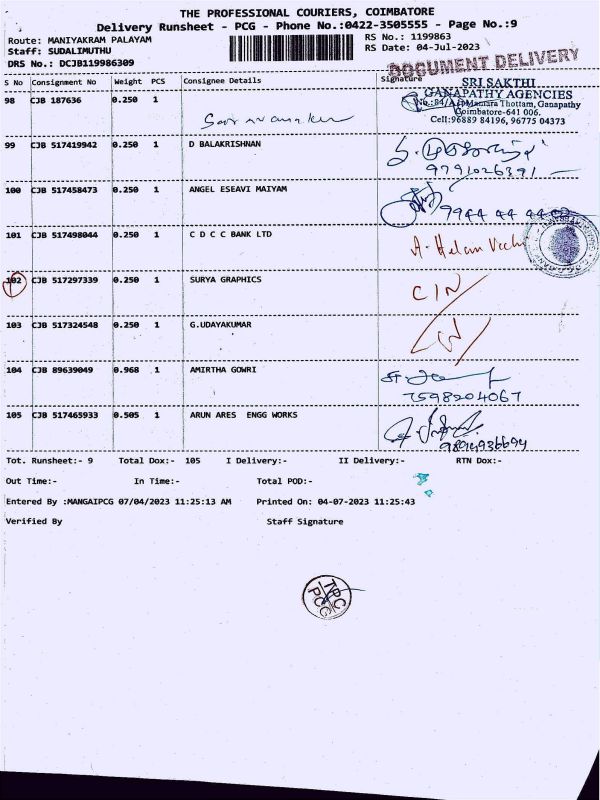 THE PROFESSIONAL COURIERS, COIMBATORE
Delivery Runsheet - PCG - Phone No.:0422-3505555 - Page No.:9
Route: MANIYAKRAM PALAYAM
RS No.: 1199863
Staff: SUDALIMUTHU
RS Date: 04-Jul-2023
DRS No.: DCJB119986309
DOCUMENT DELIVERY
S No Consignment No Weight PCS Consignee Details Signature
SRI SAKTHI
GANAPATHY AGENCIES
Thottam, Ganapathy
Coimbatore-641 006.
Cell:96889 84196, 96775 04373
98 CJB 187636 0.250 1
99 CJB 517419942 0.250 1 D BALAKRISHNAN
9791026391
100 CJB 517458473 0.250 1 ANGEL ESEAVI MAIYAM
9944 44 44
101 CJB 517498044 0.250 1 C D C C BANK LTD
A. Helan
102 CJB 517297339 0.250 1 SURYA GRAPHICS
C/N
103 CJB 517324548 0.250 1 G.UDAYAKUMAR
104 CJB 89639049 0.968 1 AMIRTHA GOWRI
7598204067
105 CJB 517465933 0.505 1 ARUN ARES ENGG WORKS
9894936694
Tot. Runsheet:- 9 Total Dox:- 105 I Delivery:- II Delivery:- RTN Dox:-
Out Time:- In Time:- Total POD:-
Entered By :MANGAIPCG 07/04/2023 11:25:13 AM Printed On: 04-07-2023 11:25:43
Verified By Staff Signature
TPC
PCG